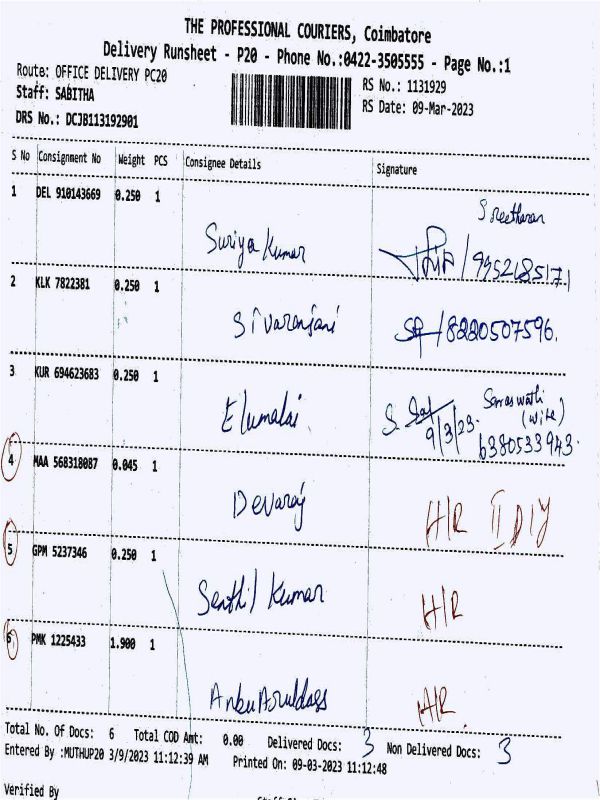 THE PROFESSIONAL COURIERS, Coimbatore
Delivery Runsheet - P20 - Phone No.:0422-3505555 - Page No.:1
Route: OFFICE DELIVERY PC20
Staff: SABITHA
DRS No.: DCJB113192901
RS No.: 1131929
RS Date: 09-Mar-2023
S No Consignment No Weight PCS Consignee Details Signature
1 DEL 910143669 0.250 1
Sreetharan
Suriya Kumar
2 KLK 7822381 0.250 1
Sivaranjani /8220507596.
3 KUR 694623683 0.250 1
Elumalai
Saraswathi
(wife)
9/3/23.
6380533943.
4 MAA 568318087 0.045 1
Devaraj H/R II DIY
5 GPM 5237346 0.250 1
Senthil Kumar H/R
6 PMK 1225433 1.900 1
H/R.
Total No. Of Docs: 6 Total COD Amt: 0.00 Delivered Docs: 3 Non Delivered Docs: 3
Entered By :MUTHUP20 3/9/2023 11:12:39 AM Printed On: 09-03-2023 11:12:48
Verified By